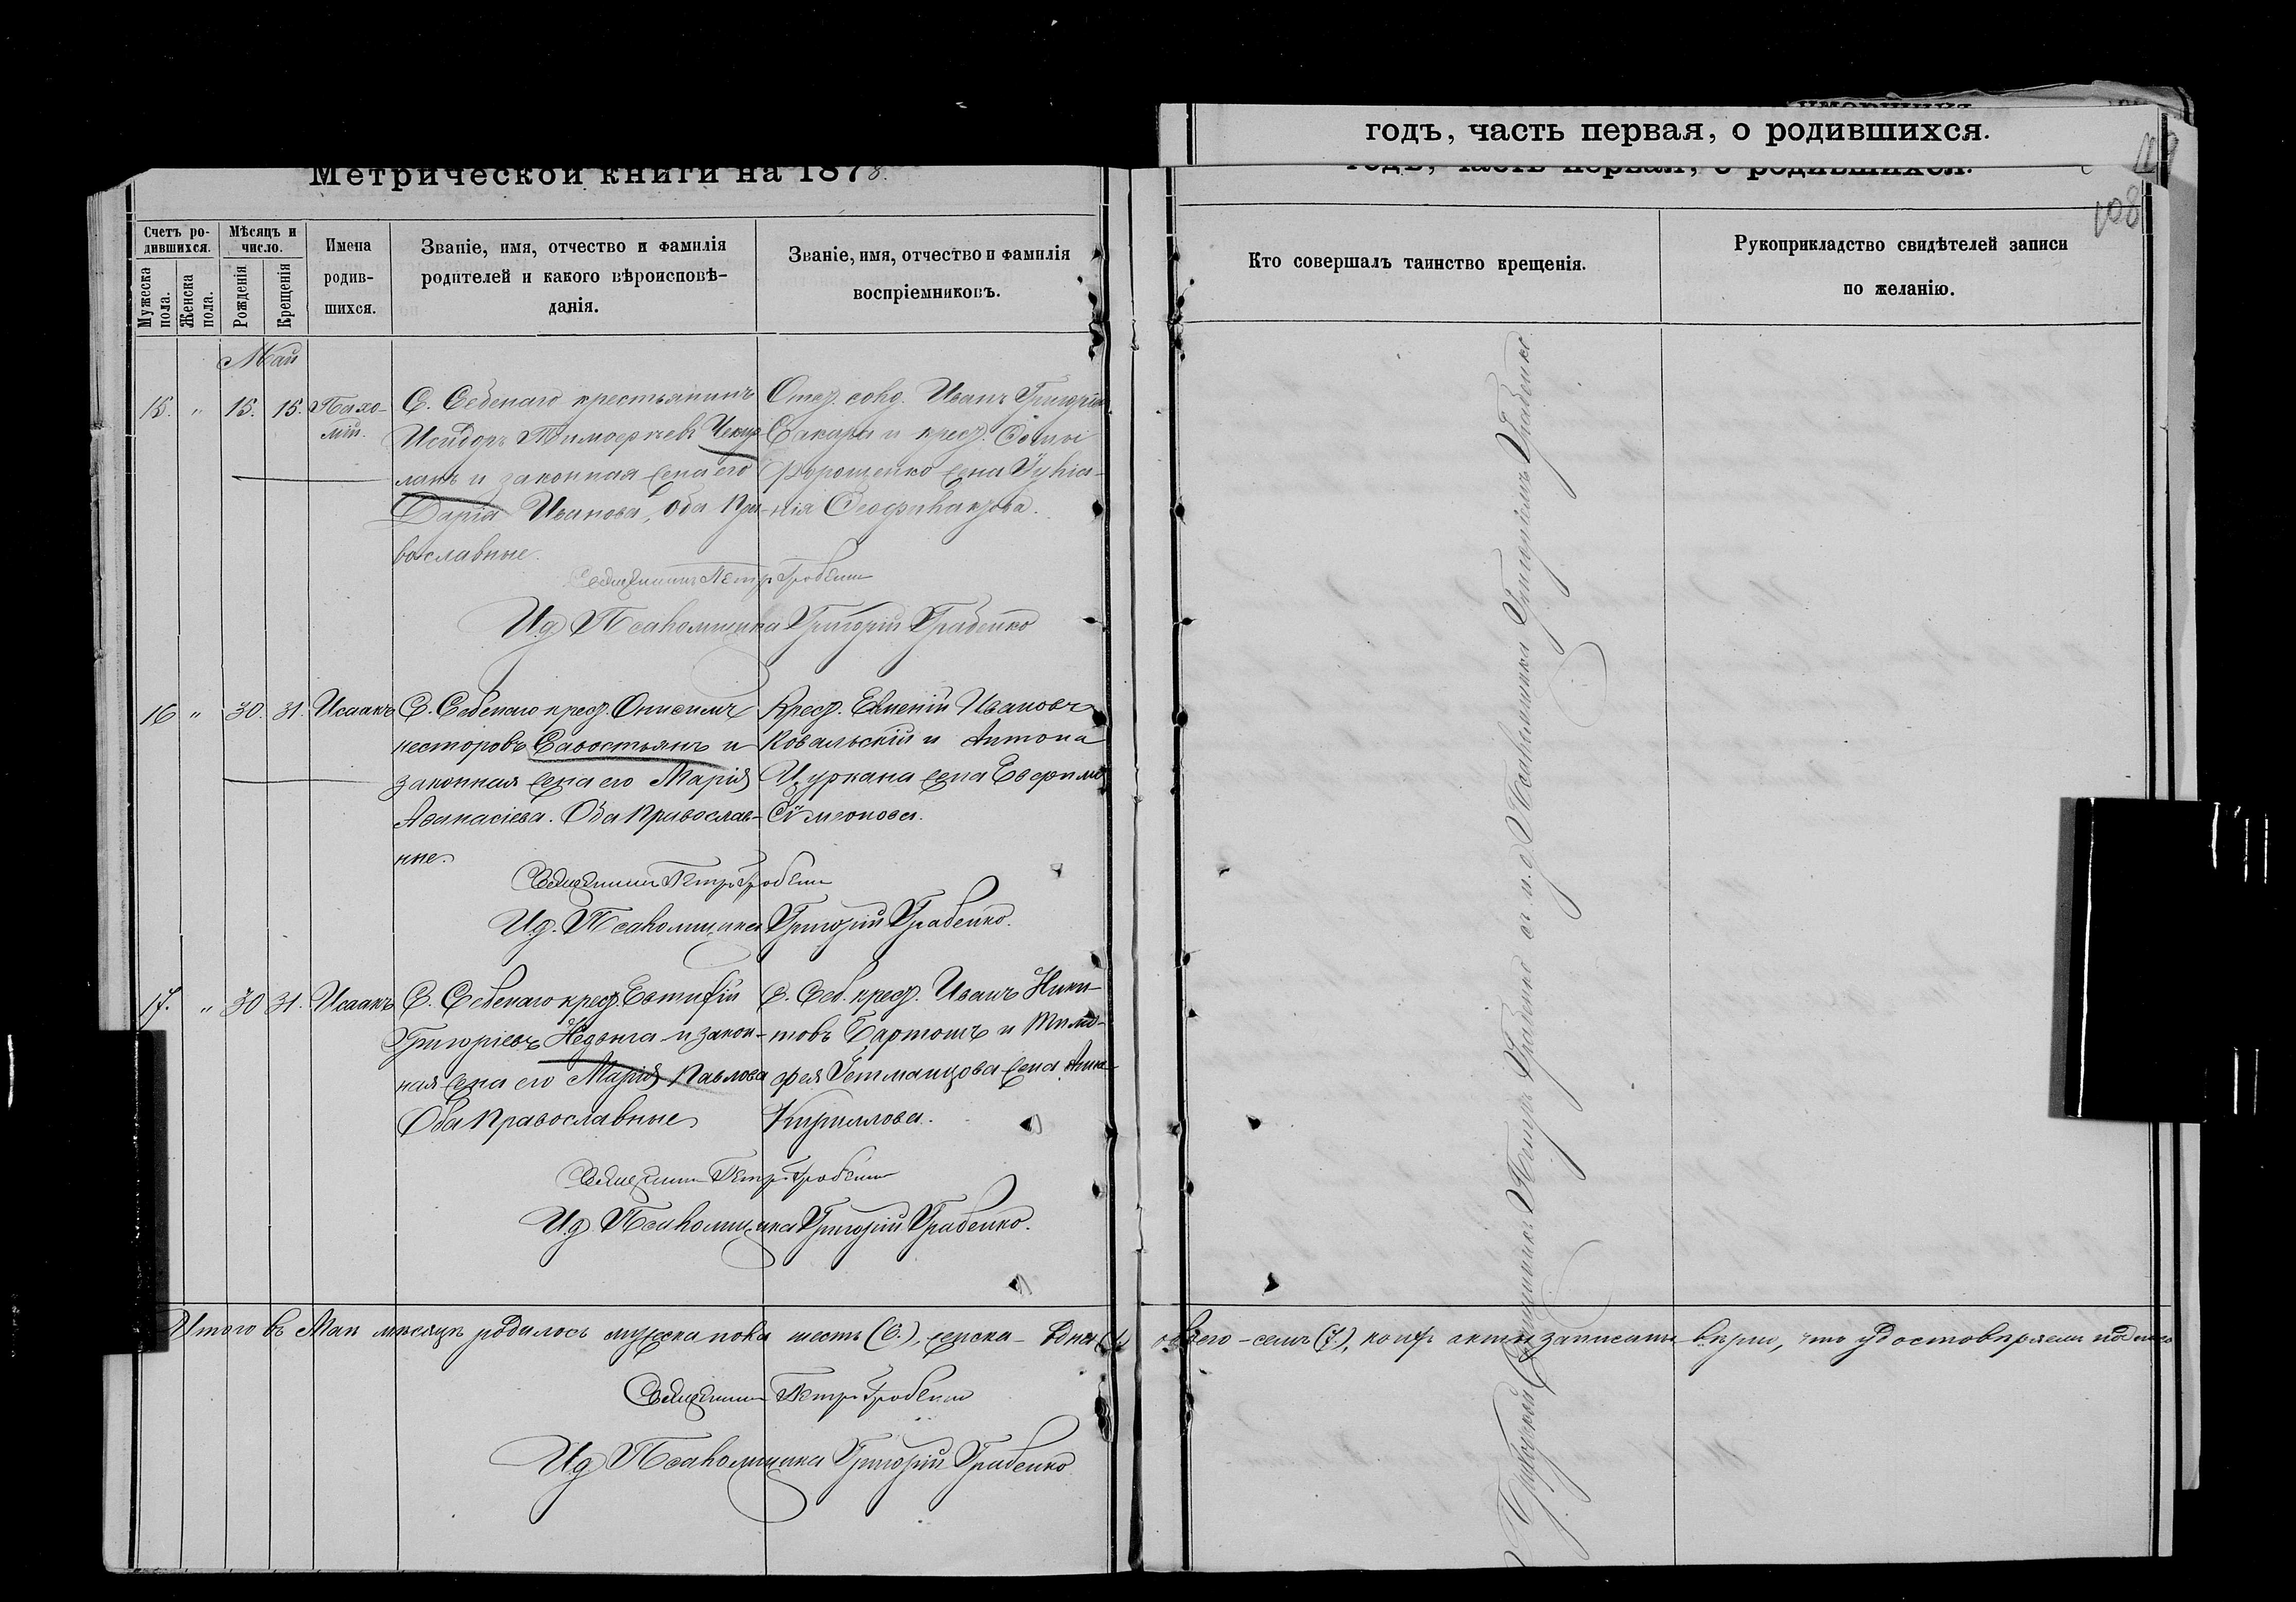 Метрической книги на 1878.
годъ, часть первая, о родившихся.
108
Счетъ ро-
дившихся.
Мужеска
пола.
Женска
пола.
Мѣсяцъ и
число.
Рожденія
Крещенія
Имена
родив-
шихся.
Званіе, имя, отчество и фамилія
родителей и какого вѣроисповѣ-
данія.
Званіе, имя, отчество и фамилія
воспріемниковъ.
Кто совершалъ таинство крещенія.
Рукоприкладство свидѣтелей записи
по желанію.
Май
15. " 15. 15. Пахо-
мій.
С. Себенаго крестьянинъ
Исидоръ Тимофеевъ Чекир-
ланъ и законная жена его
Дарія Иванова, оба Пра-
вославные.
Отст. солд. Иванъ Григорьев
Сакара и крест. Фомы
Форощенко жена Іуліа-
нія Феофилактова.
Священникъ Петръ Грабенко
И.д. Псаломщика Григорій Грабенко
16 " 30. 31. Исаакъ
С. Себенаго крест. Онисимъ
Несторовъ Савостьянъ и
законная жена его Марія
Аѳанасіева. Оба Православ-
ные.
Крест. Евмений Ивановъ
Ковальскій и Антона
Цуркана жена Евфимія
Сѵмеонова.
Священникъ Петръ Грабенко
И.д. Псаломщика Григорій Грабенко.
17. " 30 31. Исаакъ
С. Себенаго крест. Евтифій
Григоріевъ Недзыга и закон-
ная жена его Марія Павлова
Оба Православные
С. Себ. крест. Иванъ Ники-
товъ Бартошъ и Тимо-
фея Гетманцова жена Анна
Кириллова.
Священникъ Петръ Грабенко
И.д. Псаломщика Григорій Грабенко.
Приходскій Священникъ Петръ Грабенко съ и.д. Псаломщика Григоріемъ Грабенко
Итого въ Маѣ мѣсяцѣ родилось мужеска пола шесть (6.), женска - одна (1.) обоего - семь (7.), коихъ акты записаны вѣрно, что удостовѣряемъ подписью
Священникъ Петръ Грабенко
И.д. Псаломщика Григорій Грабенко